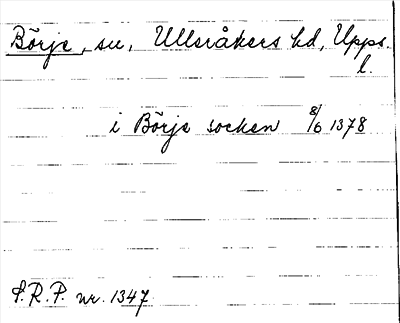 Börje, sn, Ullsråkers hd, Upps.
l.
i Börje socken 8/6 1378
S.R.P. nr. 1347